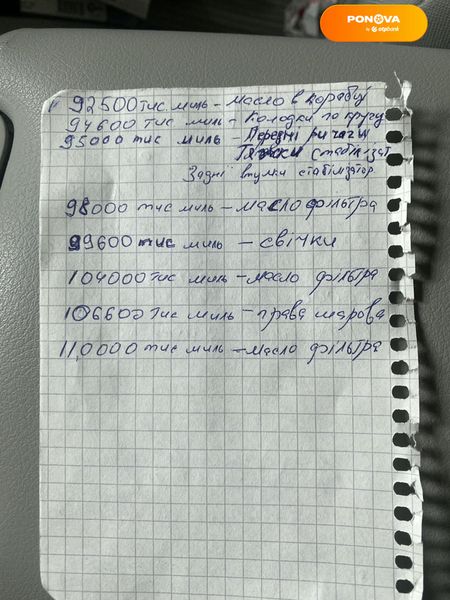 PONOVA
by otpbank
92500 тис. миль - масло в коробці
94600 тис миль - Колодки по кругу
95000 тис миль - Передні ричаги
Тяжки стабілізат
Задні втулки стабілізатор
98000 тис миль - масло фільтра
99600 тис миль - свічки
104000 тис миль - масло фільтра
106600 тис миль - права шарова
110000 тис миль - масло фільтра